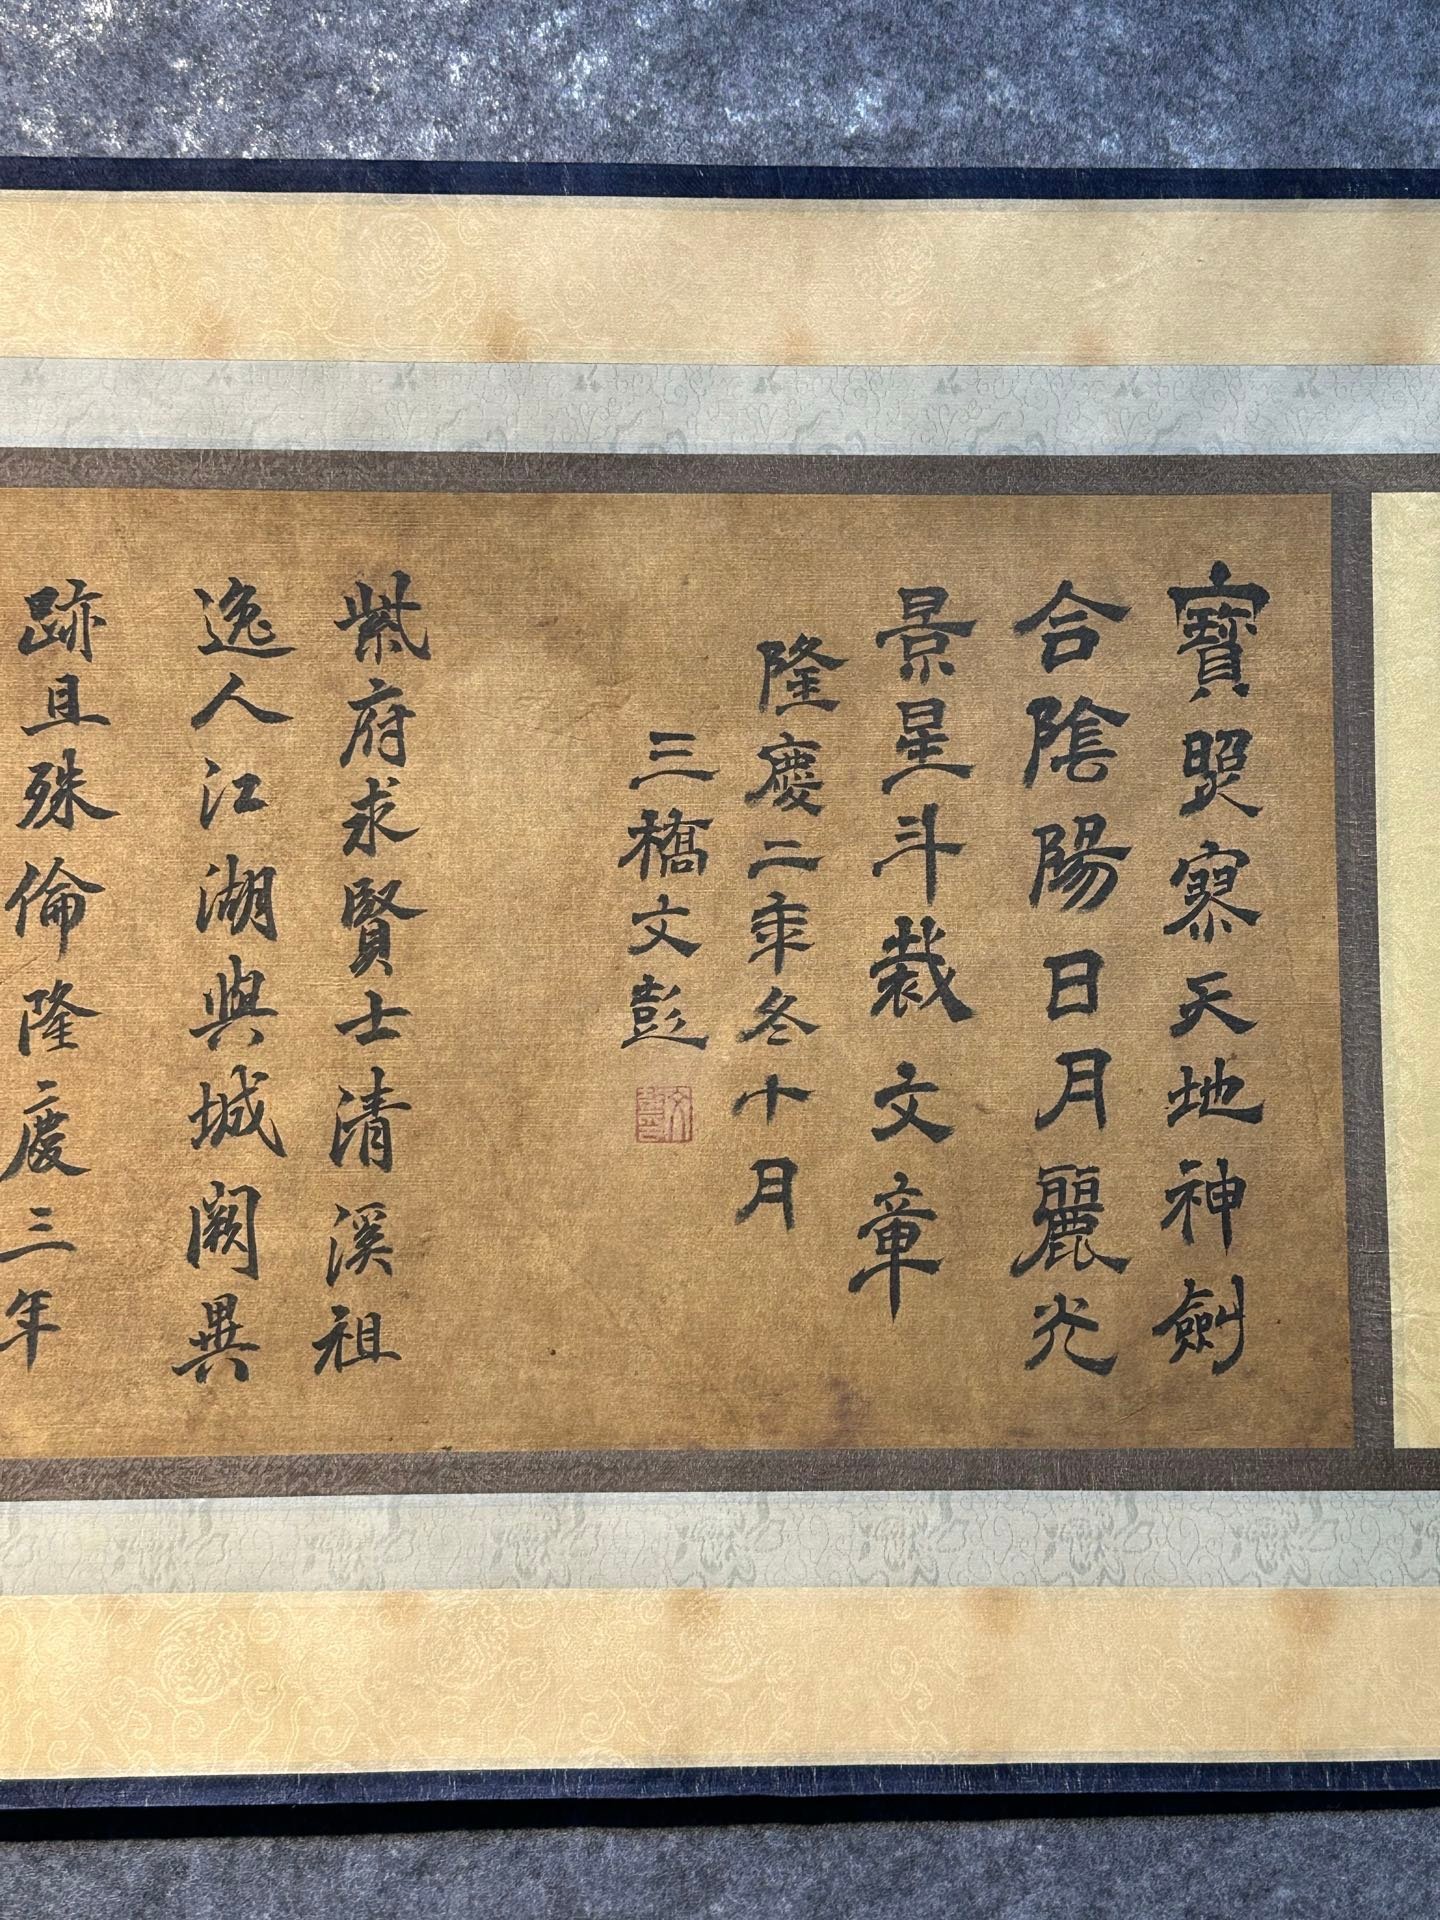 寶照寥天地神劍
合陰陽日月麗光
景星斗裁文章
隆慶二年冬十月
三橋文彭
紫府求賢士清溪祖
逸人江湖與城闕異
跡且殊倫隆慶三年